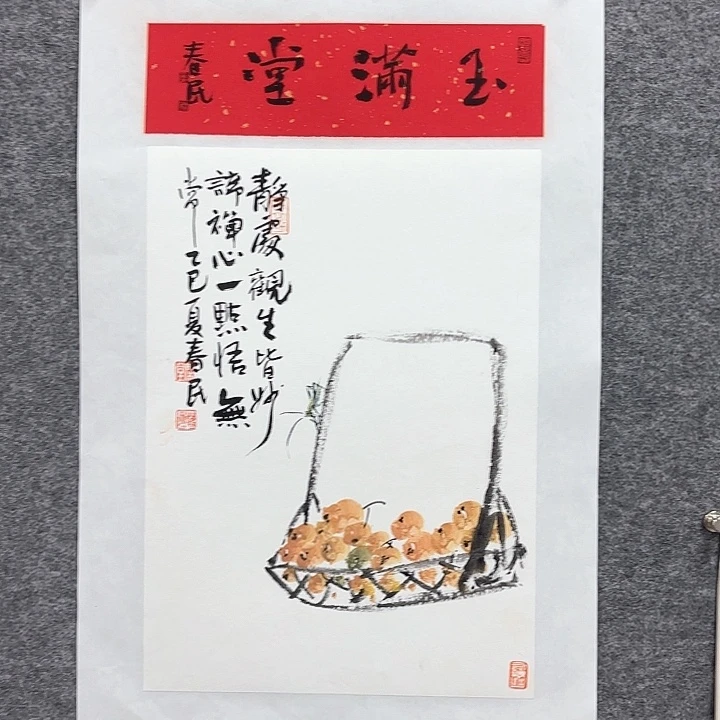 玉满堂
春民
靜處觀生皆妙
諦禅心一點悟無
常乙巳夏春民